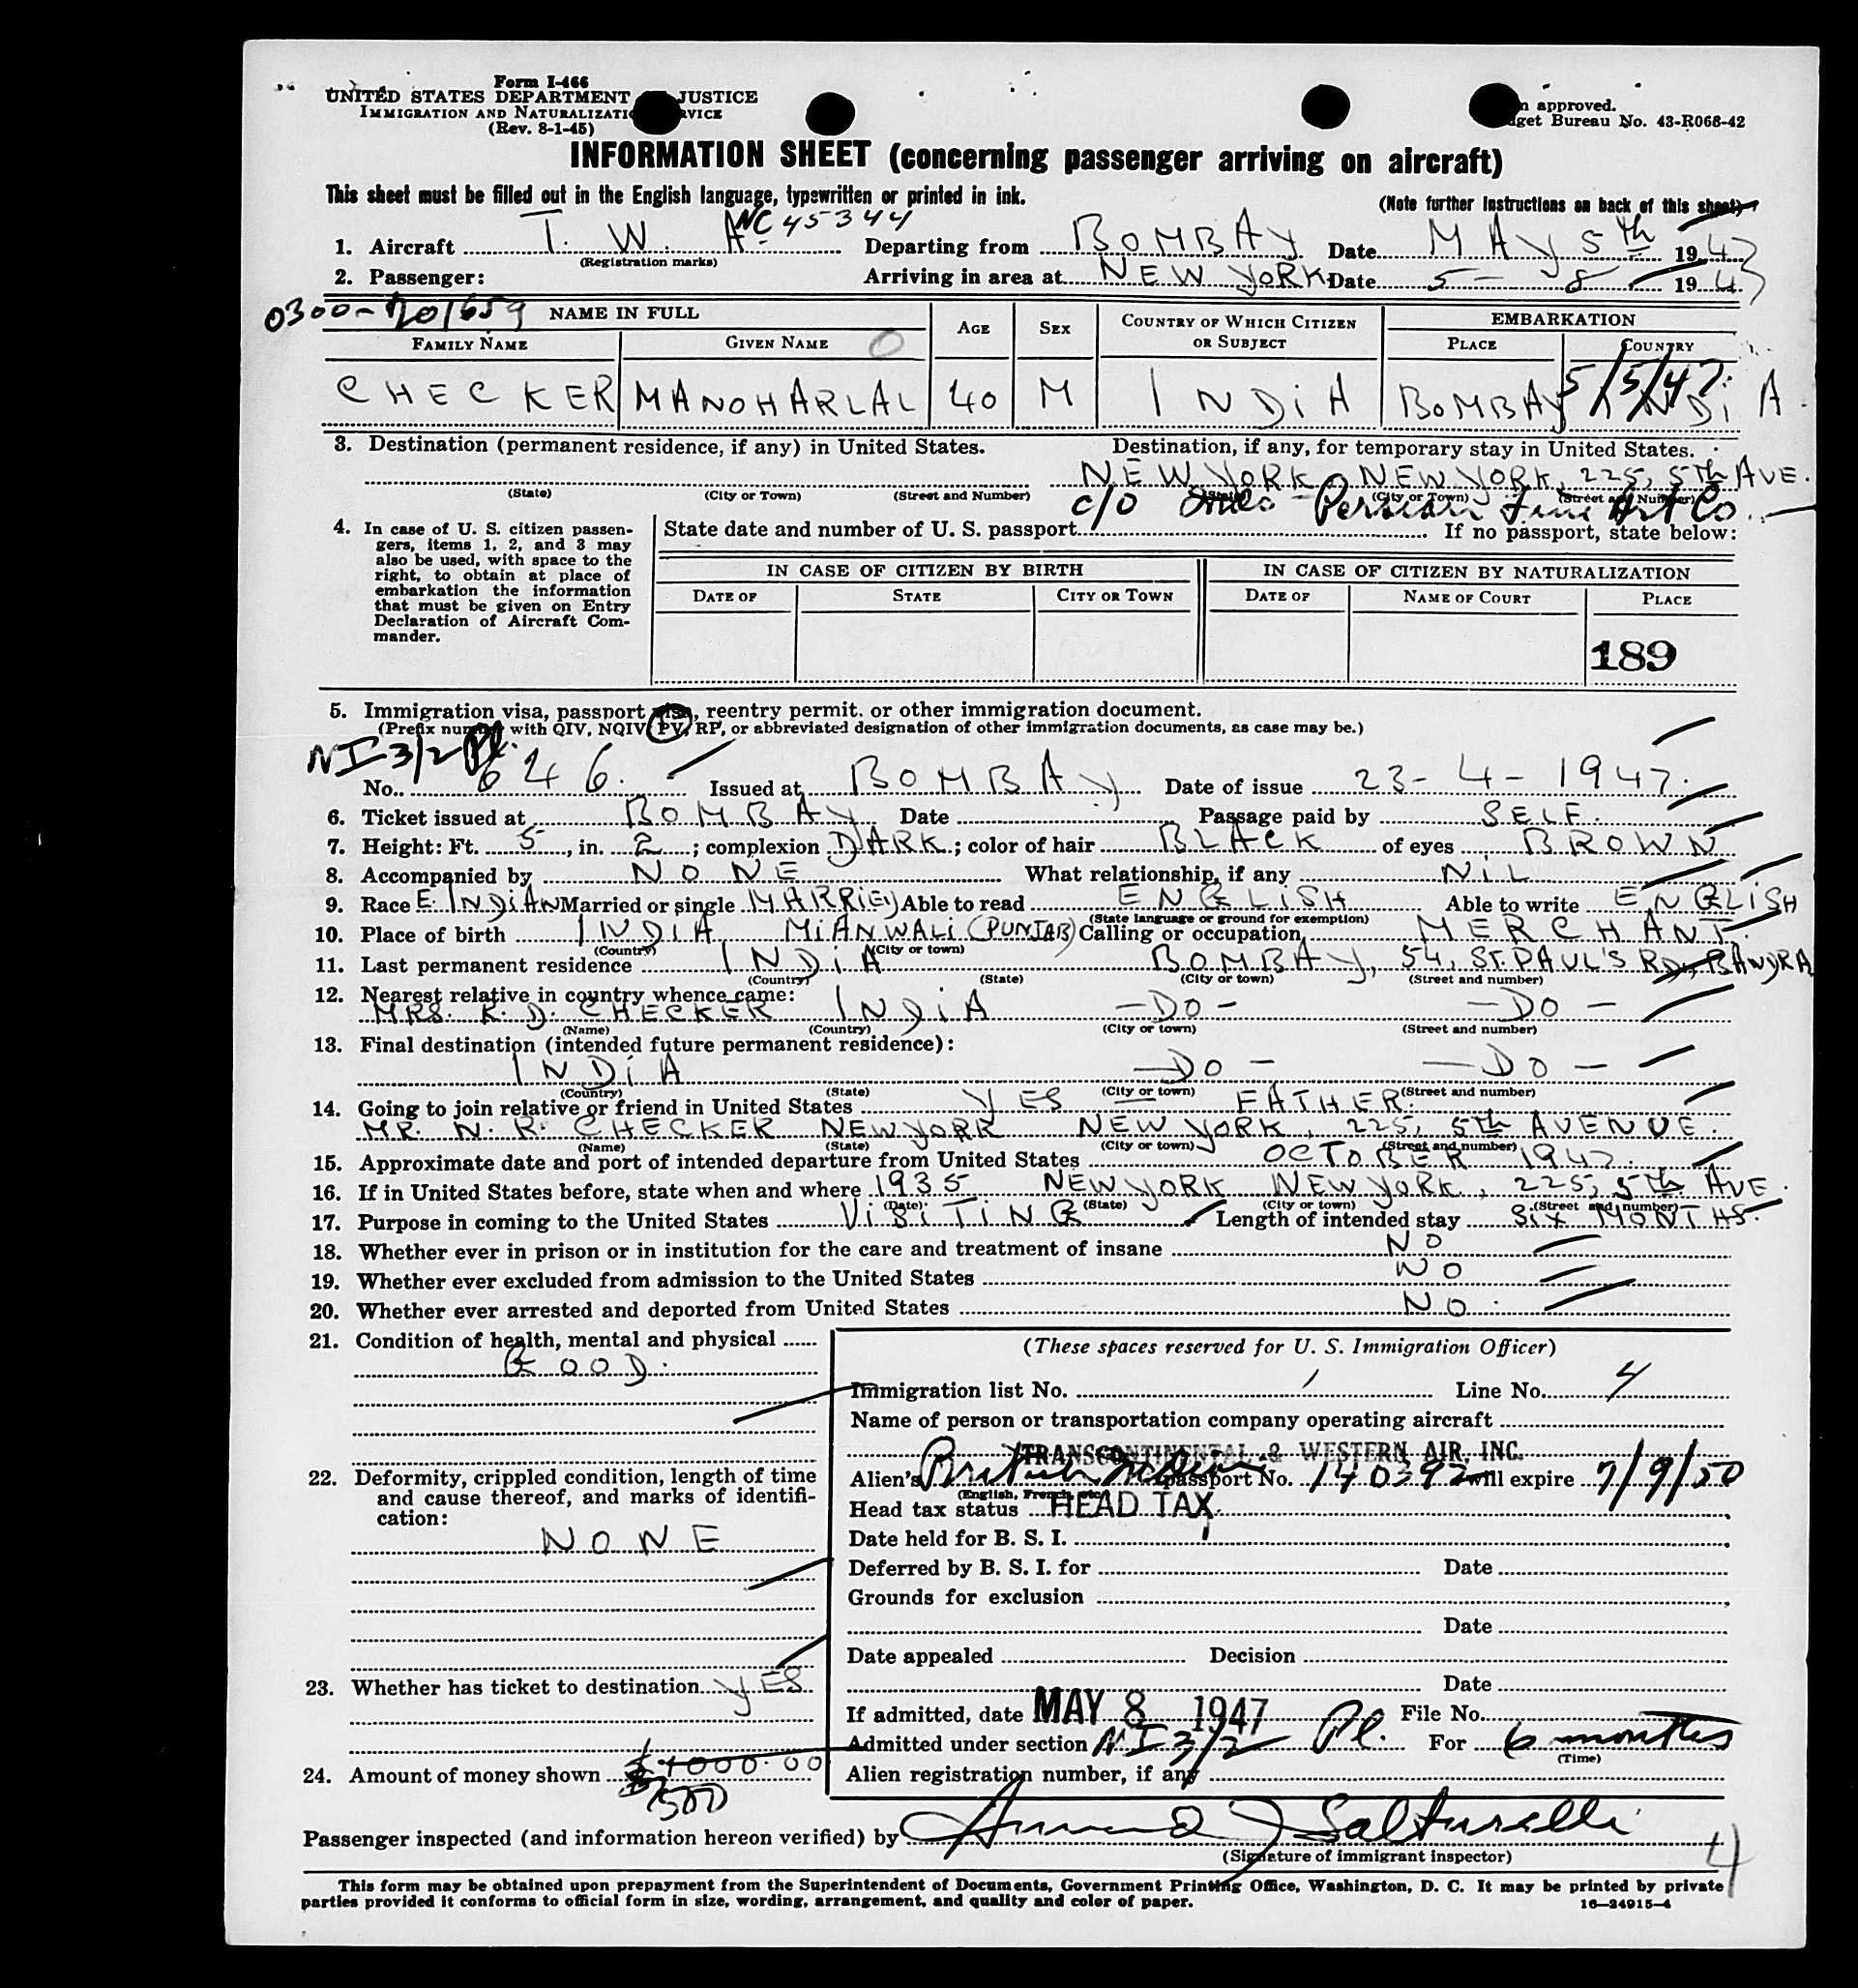 Form I-466
UNITED STATES DEPARTMENT JUSTICE
IMMIGRATION AND
(Rev. 8-1-45)
approved.
Bureau No. 43-R068-42
INFORMATION SHEET (concerning passenger arriving on aircraft)
This sheet must be filled out in the English language, typewritten or printed in ink.
(Note further instructions on back of this sheet)
1. Aircraft T. W. A. NC 45344 (Registration marks) Departing from BOMBAY Date MAY 5th 1947
2. Passenger: Arriving in area at NEW YORK Date 5 - 8 - 1947
0300-
NAME IN FULL AGE SEX COUNTRY OF WHICH CITIZEN OR SUBJECT EMBARKATION
FAMILY NAME GIVEN NAME PLACE COUNTRY
5/5/47
CHECKER MANOHARLAL 40 M INDIA BOMBAY INDIA
3. Destination (permanent residence, if any) in United States. Destination, if any, for temporary stay in United States.
NEW YORK NEW YORK, 225, 5th AVE.
(State) (City or Town) (Street and Number) (State) (City or Town) (Street and Number)
c/o Persian Fine Art Co.
4. In case of U. S. citizen passengers, items 1, 2, and 3 may also be used, with space to the right, to obtain at place of embarkation the information that must be given on Entry Declaration of Aircraft Commander.
State date and number of U. S. passport If no passport, state below:
IN CASE OF CITIZEN BY BIRTH IN CASE OF CITIZEN BY NATURALIZATION
DATE OF STATE CITY OR TOWN DATE OF NAME OF COURT PLACE
189
5. Immigration visa, passport visa, reentry permit, or other immigration document.
(Prefix number with QIV, NQIV, PV, RP, or abbreviated designation of other immigration documents, as case may be.)
NI 3/2 Pl.
No. 646. Issued at BOMBAY Date of issue 23-4-1947.
6. Ticket issued at BOMBAY Date Passage paid by SELF.
7. Height: Ft. 5, in. 2; complexion DARK; color of hair BLACK of eyes BROWN
8. Accompanied by NONE What relationship, if any NIL
9. Race E. INDIAN Married or single MARRIED Able to read ENGLISH Able to write ENGLISH
(State language or ground for exemption)
10. Place of birth INDIA MIANWALI (PUNJAB) Calling or occupation MERCHANT
(Country) (City or town)
11. Last permanent residence INDIA BOMBAY, 54, ST. PAUL'S RD, BANDRA
(Country) (State) (City or town) (Street and number)
12. Nearest relative in country whence came:
MRS. K. D. CHECKER INDIA -DO- -DO-
(Name) (Country) (City or town) (Street and number)
13. Final destination (intended future permanent residence):
INDIA -DO- -DO-
(Country) (State) (City or town) (Street and number)
14. Going to join relative or friend in United States YES FATHER.
MR. N. R. CHECKER NEW YORK NEW YORK, 225, 5th AVENUE.
(Name) (State) (City or town) (Street and number)
15. Approximate date and port of intended departure from United States OCTOBER 1947.
16. If in United States before, state when and where 1935 NEW YORK NEW YORK, 225, 5th AVE.
(Date) (State) (City or town) (Street and number)
17. Purpose in coming to the United States VISITING Length of intended stay SIX MONTHS.
18. Whether ever in prison or in institution for the care and treatment of insane NO
19. Whether ever excluded from admission to the United States NO
20. Whether ever arrested and deported from United States NO.
21. Condition of health, mental and physical
GOOD.
22. Deformity, crippled condition, length of time and cause thereof, and marks of identification:
NONE
23. Whether has ticket to destination YES
24. Amount of money shown $1000.00
$1500
(These spaces reserved for U. S. Immigration Officer)
Immigration list No. 1 Line No. 4
Name of person or transportation company operating aircraft
TRANSCONTINENTAL & WESTERN AIR, INC.
Alien's British Indian passport No. 140392 will expire 7/9/50
(English, French, etc.)
Head tax status HEAD TAX
Date held for B. S. I.
Deferred by B. S. I. for Date
Grounds for exclusion
Date
Date appealed Decision
Date
If admitted, date MAY 8 1947 File No.
Admitted under section NI 3/2 Pl. For 6 months
(Time)
Alien registration number, if any
Passenger inspected (and information hereon verified) by
(Signature of immigrant inspector)
4
This form may be obtained upon prepayment from the Superintendent of Documents, Government Printing Office, Washington, D. C. It may be printed by private
parties provided it conforms to official form in size, wording, arrangement, and quality and color of paper.
16—24915-4